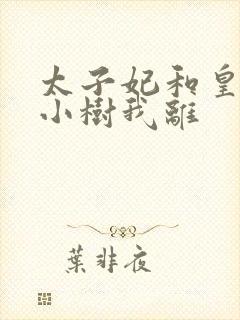 太子妃和皇
小樹我離
葉非夜